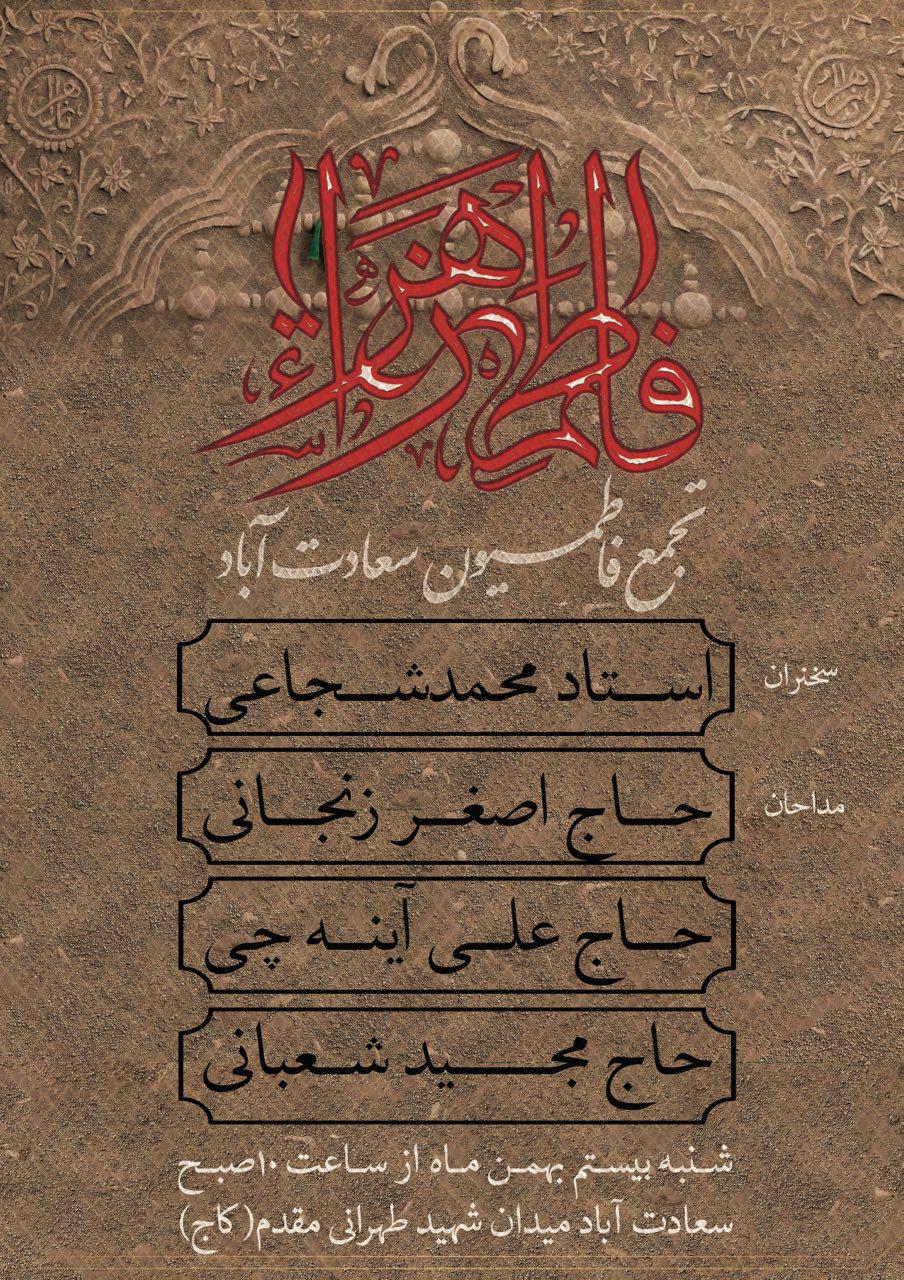 فاطمة الزهراء
تجمع فاطمیون سعادت آباد
سخنران
استاد محمدشجاعی
مداحان
حاج اصغر زنجانی
حاج علی آینه چی
حاج مجید شعبانی
شنبه بیستم بهمن ماه از ساعت ۱۰صبح
سعادت آباد میدان شهید طهرانی مقدم(کاج)